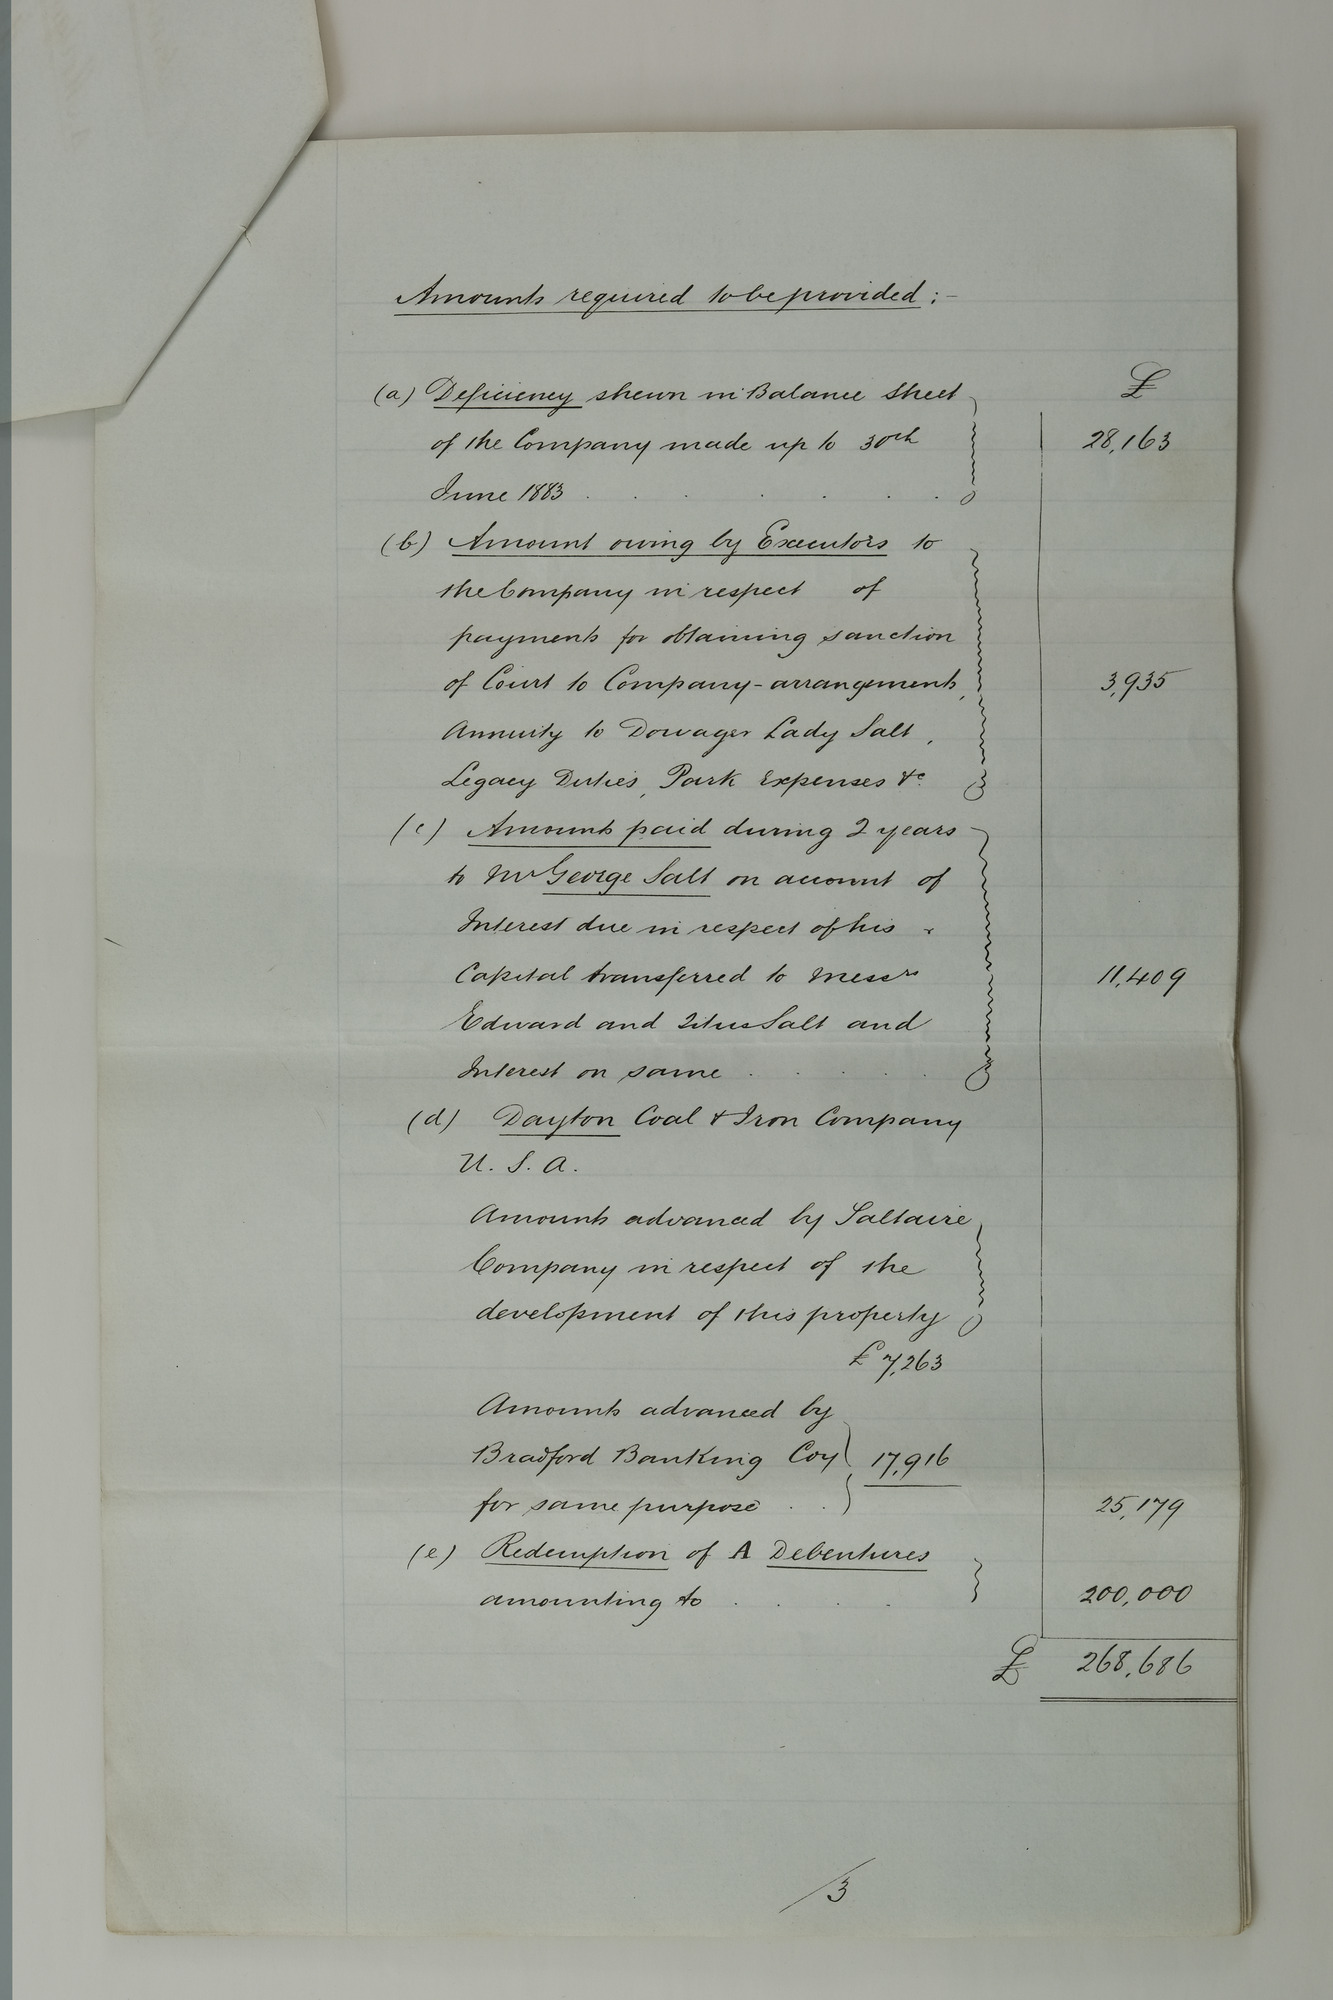 Amounts required to be provided :-
£
(a) Deficiency shewn in Balance Sheet
of the Company made up to 30th 28,163
June 1883 . . . . . .
(b) Amount owing by Executors to
the Company in respect of
payments for obtaining sanction
of Court to Company-arrangements, 3,935
Annuity to Dowager Lady Salt,
Legacy Duties, Park Expenses &c.
(c) Amounts paid during 2 years
to Mr George Salt on account of
Interest due in respect of his
Capital transferred to Messrs 11,409
Edward and Titus Salt and
Interest on same . . . . .
(d) Dayton Coal & Iron Company
U. S. A.
Amounts advanced by Saltaire
Company in respect of the
development of this property
£ 7,263
Amounts advanced by
Bradford Banking Coy 17,916
for same purpose . . 25,179
(e) Redemption of A Debentures
amounting to . . . . 200,000
£ 268,686
/3